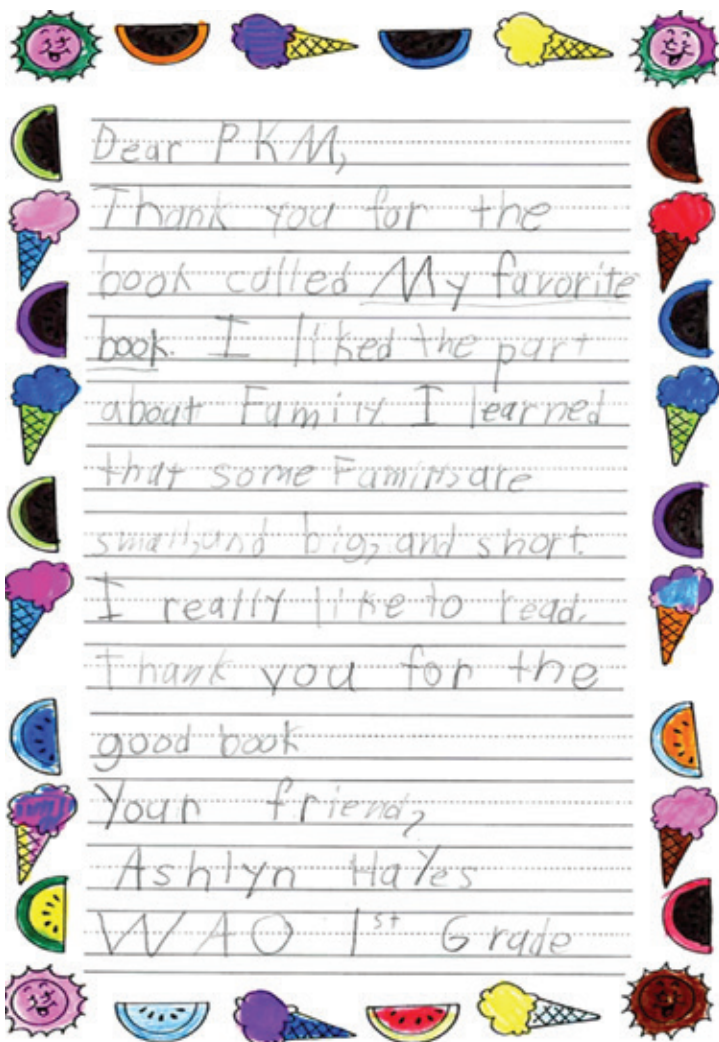 Dear PKM,
Thank you for the
book called My favorite
book. I liked the part
about Family. I learned
that some Familys are
small, and big, and short.
I really like to read.
Thank you for the
good book
Your friend,
Ashlyn HaYes
WAO 1st Grade